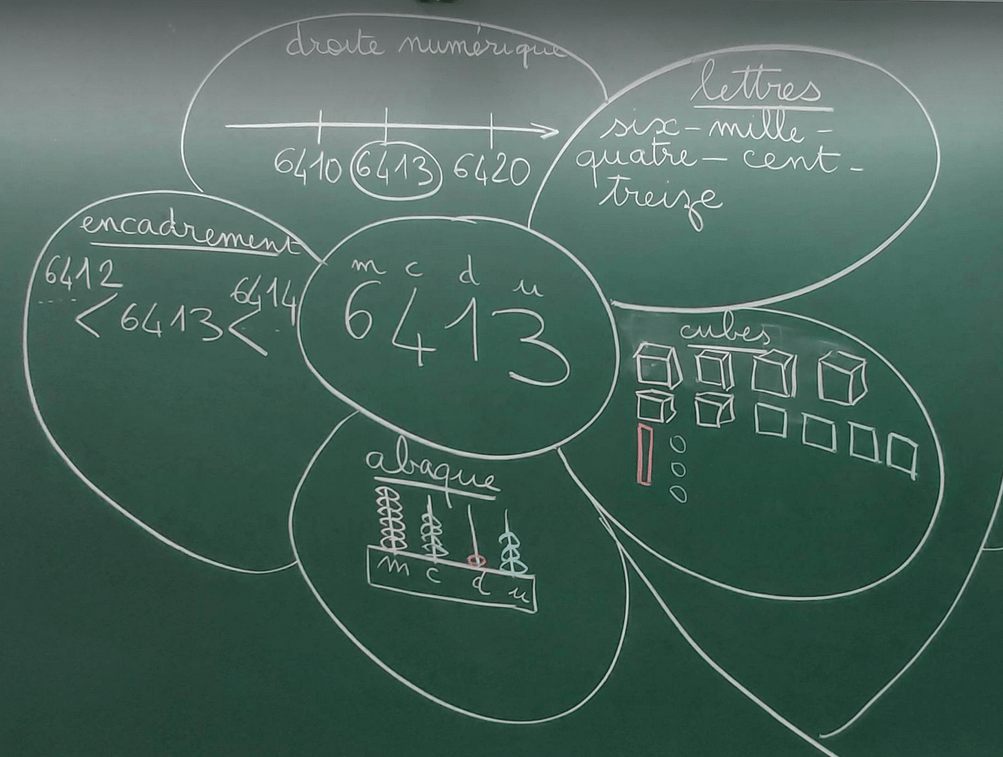 droite numérique
6410 6413 6420
lettres
six-mille-
quatre-cent-
treize
encadrement
6412 < 6413 < 6414
m c d u
6413
cubes
abaque
m c d u